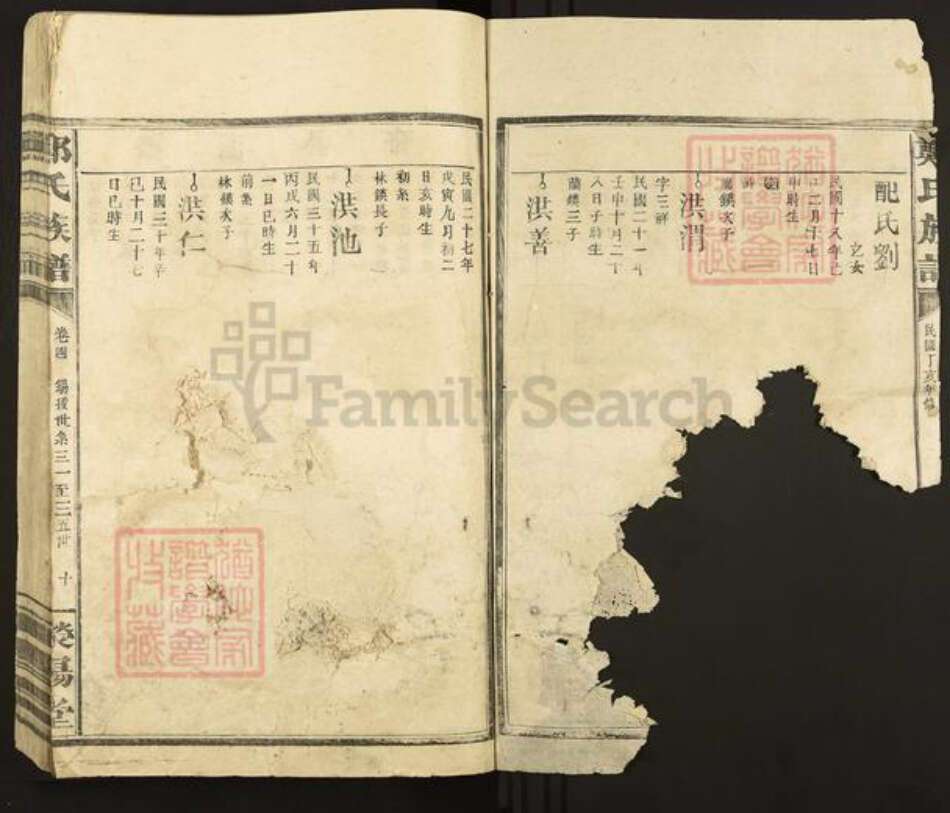 鄭氏族譜
民國丁亥年修
配氏劉
之女
民國十八年己
二月十七日
申時生
蘭鏷次子
洪渭
字三祥
民國二十一年
壬申十月二十
八日子時生
蘭鏷三子
洪善
民國二十七年
戊寅九月初二
日亥時生
初系
林鏷長子
洪池
民國三十五年
丙戌六月二十
一日巳時生
前系
林鏷次子
洪仁
民國三十年辛
巳十月二十七
日巳時生
氏族譜
卷四
世系三一至三五世
十
堂
FamilySearch